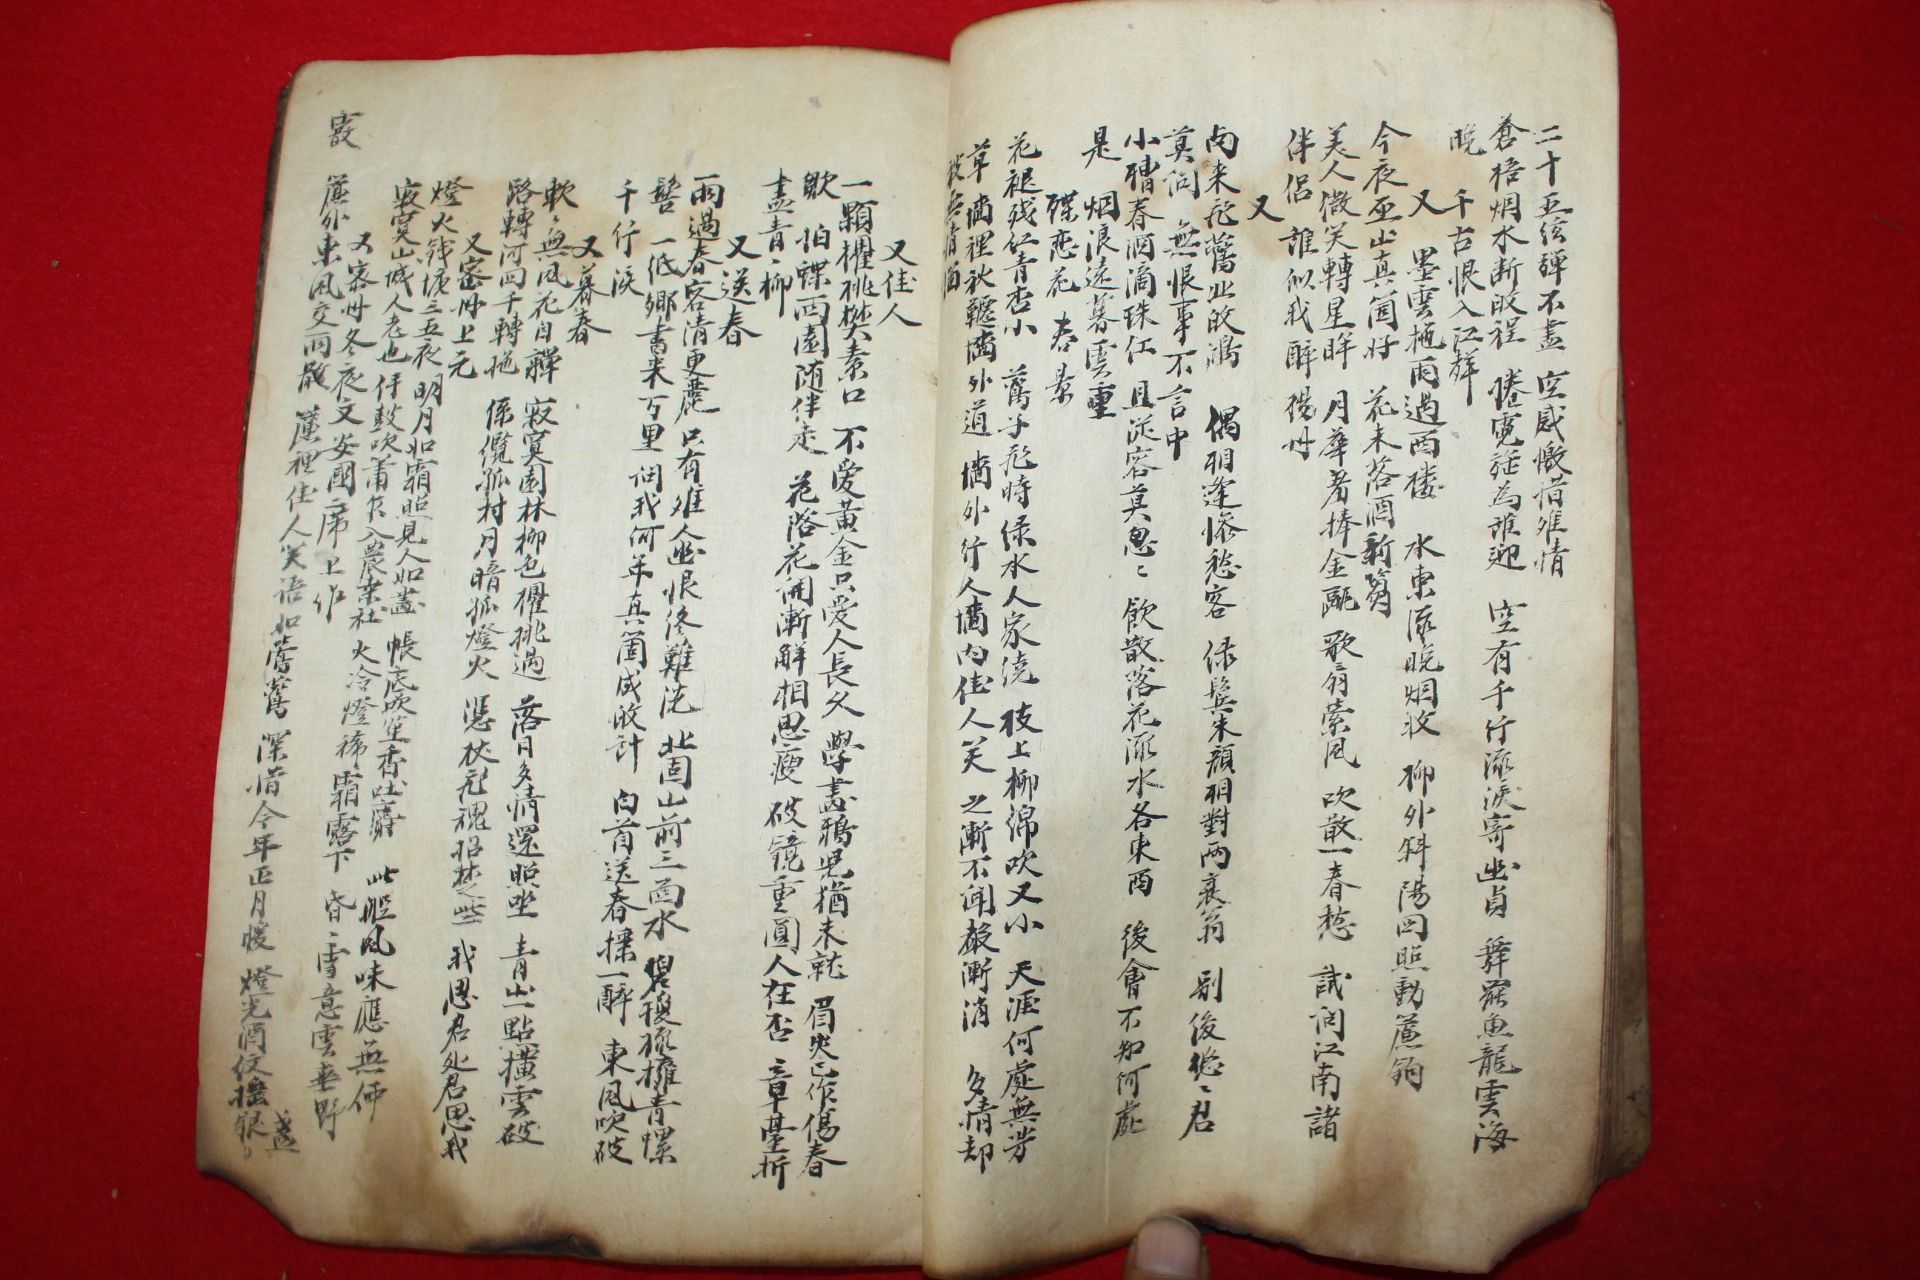 二十五絃彈不盡 空感慨惜離情
蒼梧烟水斷歸程 捲霓旌為誰迎 空有千行流淚寄幽貞 舞罷魚龍雲海
晚 千古恨入江聲
又 墨雲拖雨過西樓 水東流晚烟收 柳外斜陽回照動簾鉤
今夜巫山真箇好 花未落酒新篘
美人微笑轉星眸 月華羞捧金甌 歌扇縈風 吹散一春愁 試問江南諸
伴侶 誰似我醉楊州
又
南來飛鷰北歸鴻 偶相逢慘愁容 綠鬓朱顏相對兩衰翁 別後悠〻君
莫問 無恨事不言中
小槽春酒滴珠紅 且從容莫忽〻 飲散落花流水各東西 後會不知何處
是 烟浪遠暮雲重
蝶戀花 春景
花褪殘紅青杏小 鷰子飛時綠水人家繞 枝上柳綿吹又小 天涯何處無芳
草 墻裡秋韆墻外道 墻外行人墻內佳人笑 之漸不聞聲漸消 多情却
被無情惱
又佳人
一顆櫻桃樊素口 不愛黃金只愛人長久 學畫鴉兒猶未就 眉尖已作傷春
皺 怕蝶西園隨伴走 花落花開漸解相思瘦 破鏡重圓人在否 章臺折
盡青〻柳
又送春
雨過春容清更麗 只有離人幽恨終難洗 北固山前三面水 碧瓊梳擁青螺
髻 一紙鄉書來万里 問我何年真箇成歸計 白首送春拚一醉 東風吹破
千行淚
又暮春
軟〻無風花自嚲 寂寞園林柳色櫻桃過 落日多情還照坐 青山一點橫雲破
路轉河回千轉拖 係纜孤村月暗孤燈火 憑仗飛魂招楚些 我思君處君思我
又密州上元
燈火錢塘三五夜 明月如霜照見人如畫 帳底吹笙香吐麝 此般風味應無価
寂寞山城人老也 仟鼓吹簫乍入農桑社 火冷燈稀霜露下 昏〻雪意雲垂野
又密州冬夜文安國席上作
簾外東風交雨霰 簾裡佳人笑語如鶯鷰 深惜今年正月暖 燈光酒色搖銀盞
霰